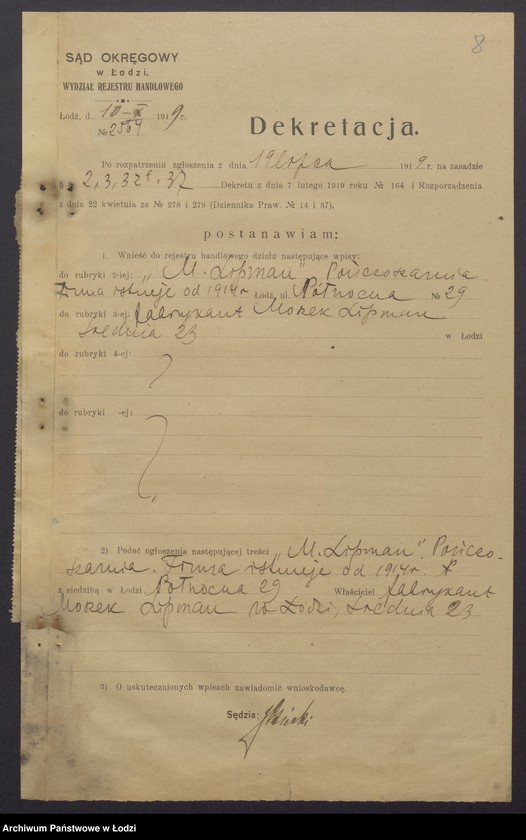 8
SĄD OKRĘGOWY
w Łodzi,
WYDZIAŁ REJESTRU HANDLOWEGO
Łódź, d. 1919 r.
№ 2569
Dekretacja.
Po rozpatrzeniu zgłoszenia z dnia 19 lipca 1919 r. na zasadzie
§ 2, 3, 37 Dekretu z dnia 7 lutego 1919 roku № 164 i Rozporządzenia
z dnia 22 kwietnia za № 278 i 279 (Dziennika Praw. № 14 i 37).
postanawiam:
1. Wnieść do rejestru handlowego działu następujące wpisy:
do rubryki 2-iej: „M. Lipman", Pończoszarnia.
Firma istnieje od 1914 r Łódź, ul. Północna № 29
do rubryki 3-ej: fabrykant Moszek Lipman
Średnia 23 w Łodzi
do rubryki 4-ej:
do rubryki -ej:
2) Podać ogłoszenia następującej treści „M. Lipman". Pończo-
szarnia. Firma istnieje od 1914 r.
z siedzibą w Łodzi, Północna 29 Właściciel fabrykant
Moszek Lipman w Łodzi, Średnia 23
3) O uskutecznionych wpisach zawiadomić wnioskodawcę.
Sędzia:
Archiwum Państwowe w Łodzi